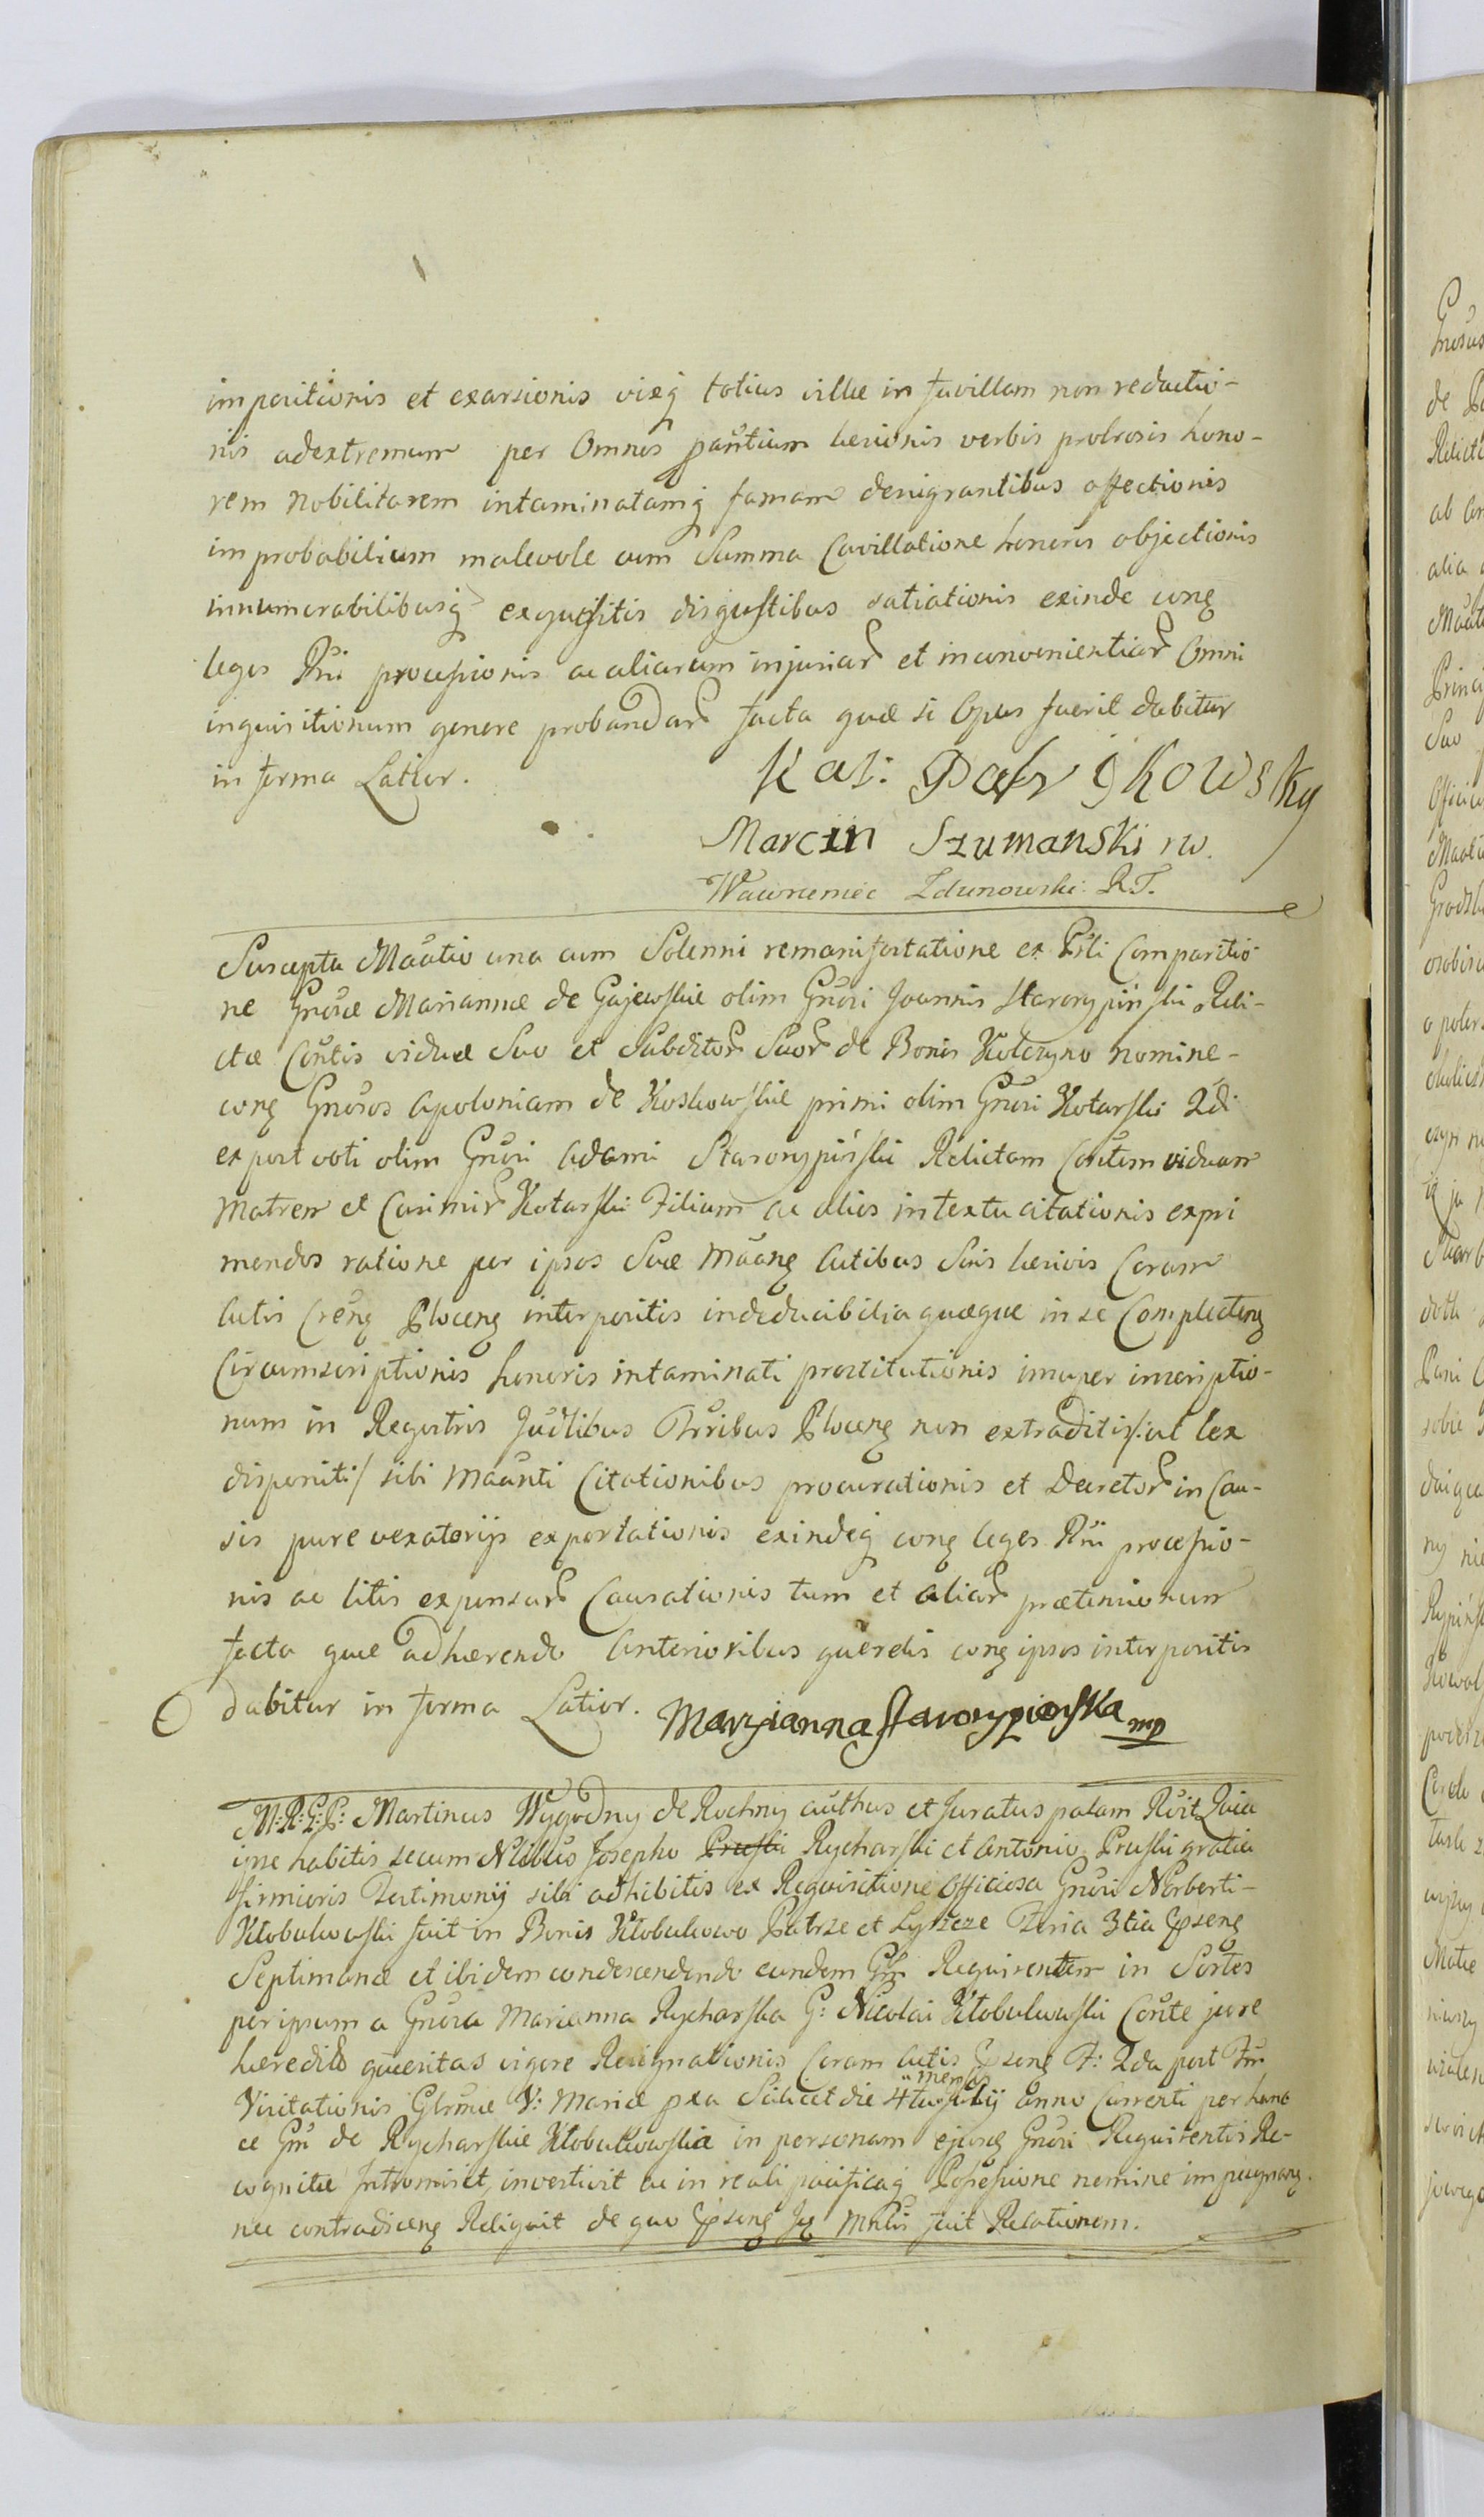 impositionis et exarsionis vixq totius villæ in favillam non reductio-
nis adextremum per Omnes partium læsionis verbis probrosis hono-
rem Nobilitarem intaminatamq famam denigrantibus affectionis
improbabilium malevole cum Summa Cavillatione honoris objectionis
innumerabilibusq exquisitis disgustibus satiationis exinde conq
leges Rni processionis ac aliarum injuriar et inconvenientiar Omni
inquisitionum genere probandar facta quæ si Opus fuerit dabitur
in forma Latior. Kas: Dabrowsky
Marcin Szumanski rw.
Wawrzeniec Zdunowski R.T.
Suscepta Maatio una cum Solenni remanifestatione ex Psti Comparitio-
ne Gnosæ Mariannæ de Gajewskie olim Gnosi Joannis Starorypiński Reli-
ctæ Contis viduæ Suo et Subditor Suor de Bonis Kołczyno nomine-
conq Gnosos Apoloniam de Koskowskie primi olim Gnosi Kotarski 2di
ex post voti olim Gnosi Adami Starorypiński Relictam Contem viduam
Matrem et Casimir Kotarski Filium ac alios in textu citationis expri
mendos ratione per ipsos Suæ Maanq Actibus Suis læsivis Coram
Actis Crenq Plocenq interpositis indeducibilia quæque in se Complectenq
Circumscriptionis honoris intaminati prostitutionis insuper inscriptio-
num in Regestris Judlibus Trribus Plocenq non extraditis /:ut lex
disponit:/ sibi Maanti Citationibus procurationis et Decretor in Cau-
sis pure vexatorijs exportationis exindeq conq leges Rni processio-
nis ac litis expensar Causationis tum et aliar prætensionum
facta quæ adhærendo Anterioribus querelis conq ipsos interpositis
dabitur in forma Latior. Maryianna Starorypienska mp
M:R:G:P: Martinus Wygodny de Rochny authus et Juratus palam Rvit Quia
ipse habitis secum Nlibus Josepho Pruski Rycharski et Antonio Pruski gratia
firmioris Testimonij sibi adhibitis ex Requisitione Officiosa Gnosi Norberti-
Kłobukowski fuit in Bonis Kłobukowo Patrze et Lyszcze Feria 3tia Psenq
Septimanæ et ibidem condescendendo eundem Gm Requirentem in Sortes
per ipsum a Gnosa Marianna Rycharska G: Nicolai Kłobukowski Conte jure
hæredito quæsitas vigore Resignationis Coram Actis Psenq F: 2da post Fm
Visitationis Glrmæ V: Mariæ pxa Scilicet die 4ta mensis Julij Anno Currenti per hanc
ce Gm de Rycharskie Kłobukowska in personam ejusq Gnosi Requirentis Re-
cognitæ Intromisit, investivit ac in reali pacificaq Possessione nemine impugnanq.
nec contradicenq Reliquit de quo Psenq Jq Mnlis fuit Relationem.